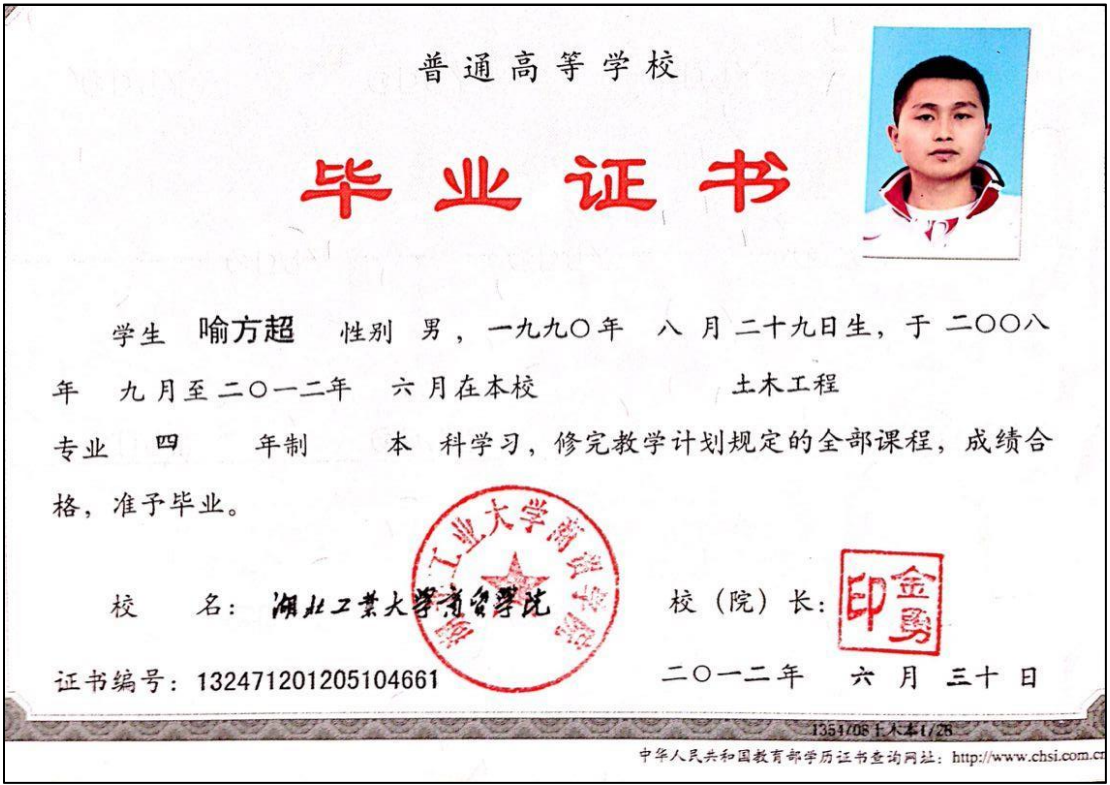 普通高等学校
毕业证书
学生 喻方超 性别 男，一九九〇年 八月二十九日生，于二〇〇八
年 九月至二〇一二年 六月在本校 土木工程
专业 四 年制 本 科学习，修完教学计划规定的全部课程，成绩合
格，准予毕业。
工业大学商贸学院
校 名：湖北工業大學商貿學院
校（院）长：
金勇印
证书编号：132471201205104661
二〇一二年 六月三十日
1354708土木本1/28
中华人民共和国教育部学历证书查询网址：http://www.chsi.com.cn